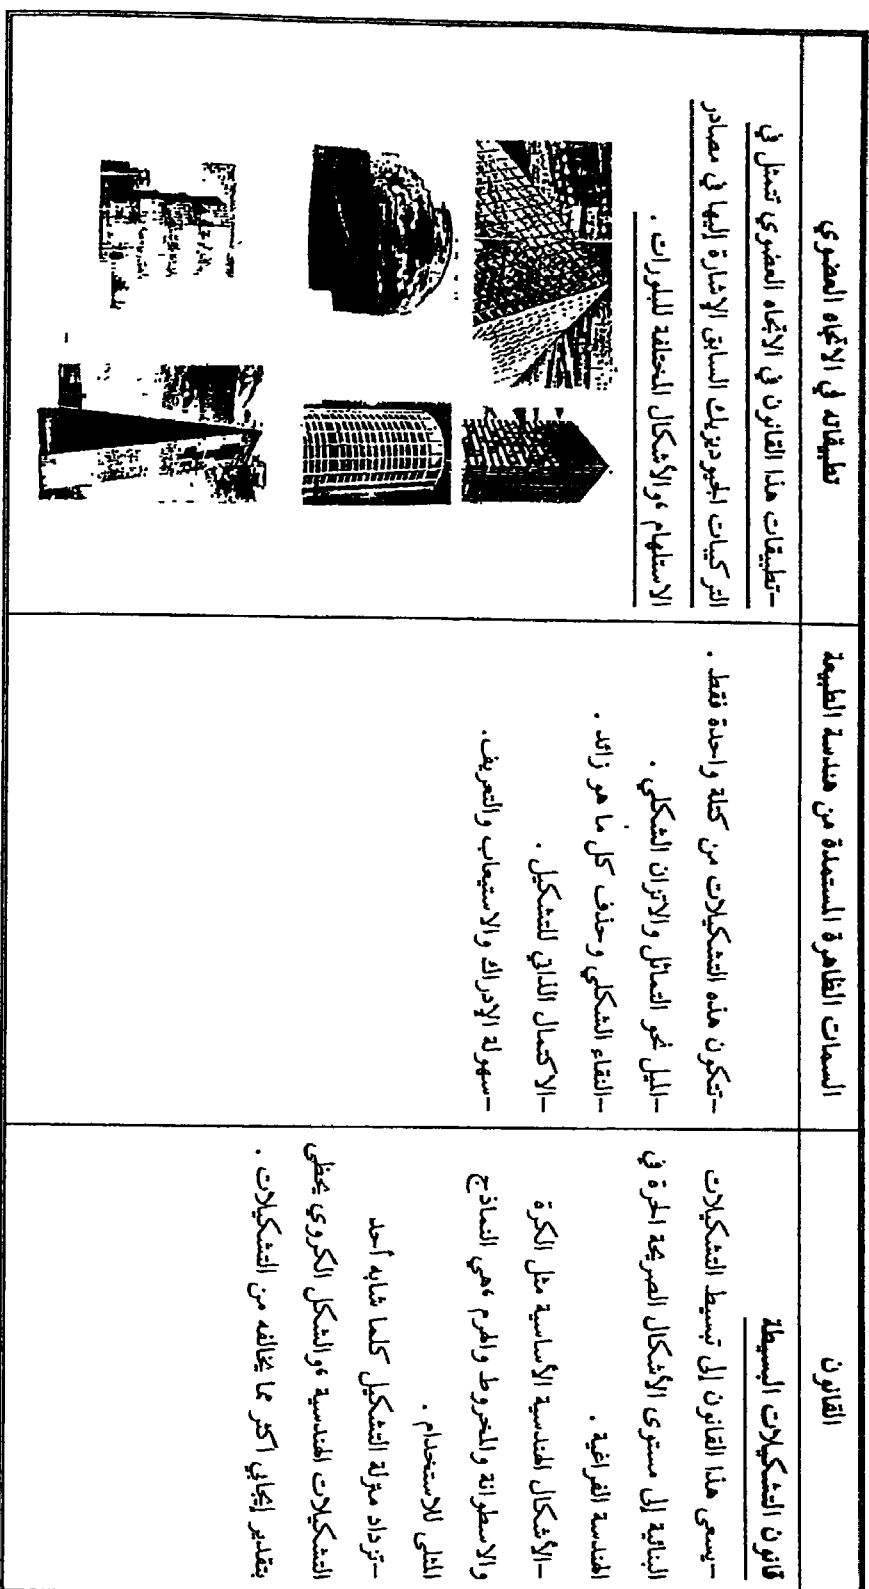 القانون
السمات الظاهرة المستمدة من هندسة الطبيعة
تطبيقاته في الاتجاه العضوي
قانون التشكيلات البسيطة
–يسعى هذا القانون إلى تبسيط التشكيلات
البنائية إلى مستوى الأشكال الصريحة الحرة في
الهندسة الفراغية .
–الأشكال الهندسية الأساسية مثل الكرة
والاسطوانة والمخروط والهرم ،هي النماذج
المثلى للاستخدام .
–تزداد منزلة التشكيل كلما شابه أحد
التشكيلات الهندسية ،والشكل الكروي يحظى
بتقدير إيجابي اكثر مما يخالفه من التشكيلات .
–تتكون هذه التشكيلات من كتلة واحدة فقط .
–الميل نحو التماثل والاتزان الشكلي .
–النقاء الشكلي وحذف كل ما هو زائد .
–الاكتمال الذاتي للتشكيل .
–سهولة الإدراك والاستيعاب والتعريف.
–تطبيقات هذا القانون في الاتجاه العضوي تتمثل في
التركيبات الجيوديزيك السابق الإشارة إليها في مصادر
الاستلهام ،والأشكال المختلفة للبلورات .